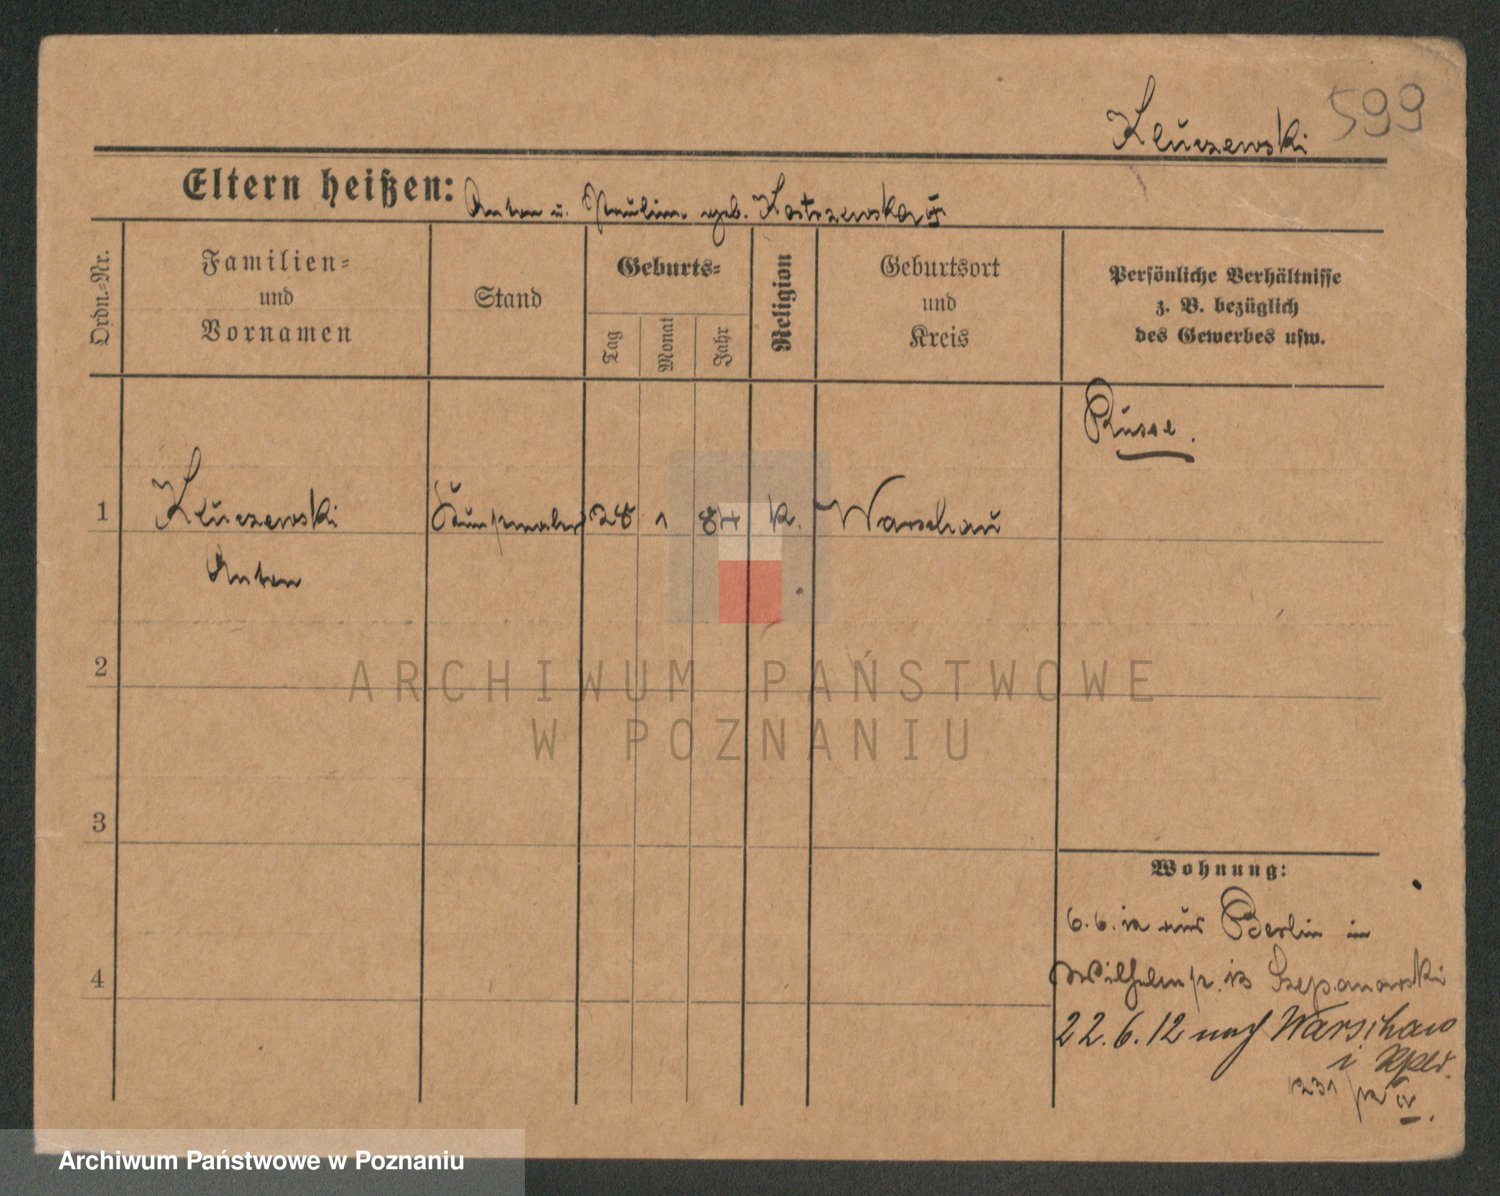 Kluczewski 599
Eltern heißen: Anton u. Paulina geb. Kostrzewska
Ordn.-Nr.
Familien-
und
Vornamen
Stand
Geburts-
Tag
Monat
Jahr
Religion
Geburtsort
und
Kreis
Persönliche Verhältnisse
z. B. bezüglich
des Gewerbes usw.
Russe.
1 Kluczewski Kunstmaler 28 1 87 k. Warschau
Anton
2
ARCHIWUM PAŃSTWOWE
W POZNANIU
3
4
Wohnung:
6.6.12 aus Berlin in
Wilhelmstr. 13 Szepanowski
22.6.12 nach Warschau
Archiwum Państwowe w Poznaniu